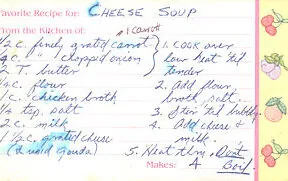 Favorite Recipe for: CHEESE SOUP
From the Kitchen of: 1 Carrot
1/2 c. finely grated carrot
" " chopped onion
2 T. butter
1/4 c. flour
1 c. chicken broth
1/4 tsp. salt
2 c. milk
1 1/2 c. grated cheese
(I used gouda)
1. Cook over
low heat 'til
tender
2. Add flour,
broth, salt.
3. Stir 'til bubbly.
4. Add cheese &
milk.
5. Heat thru. Don't
Boil
Makes: 4